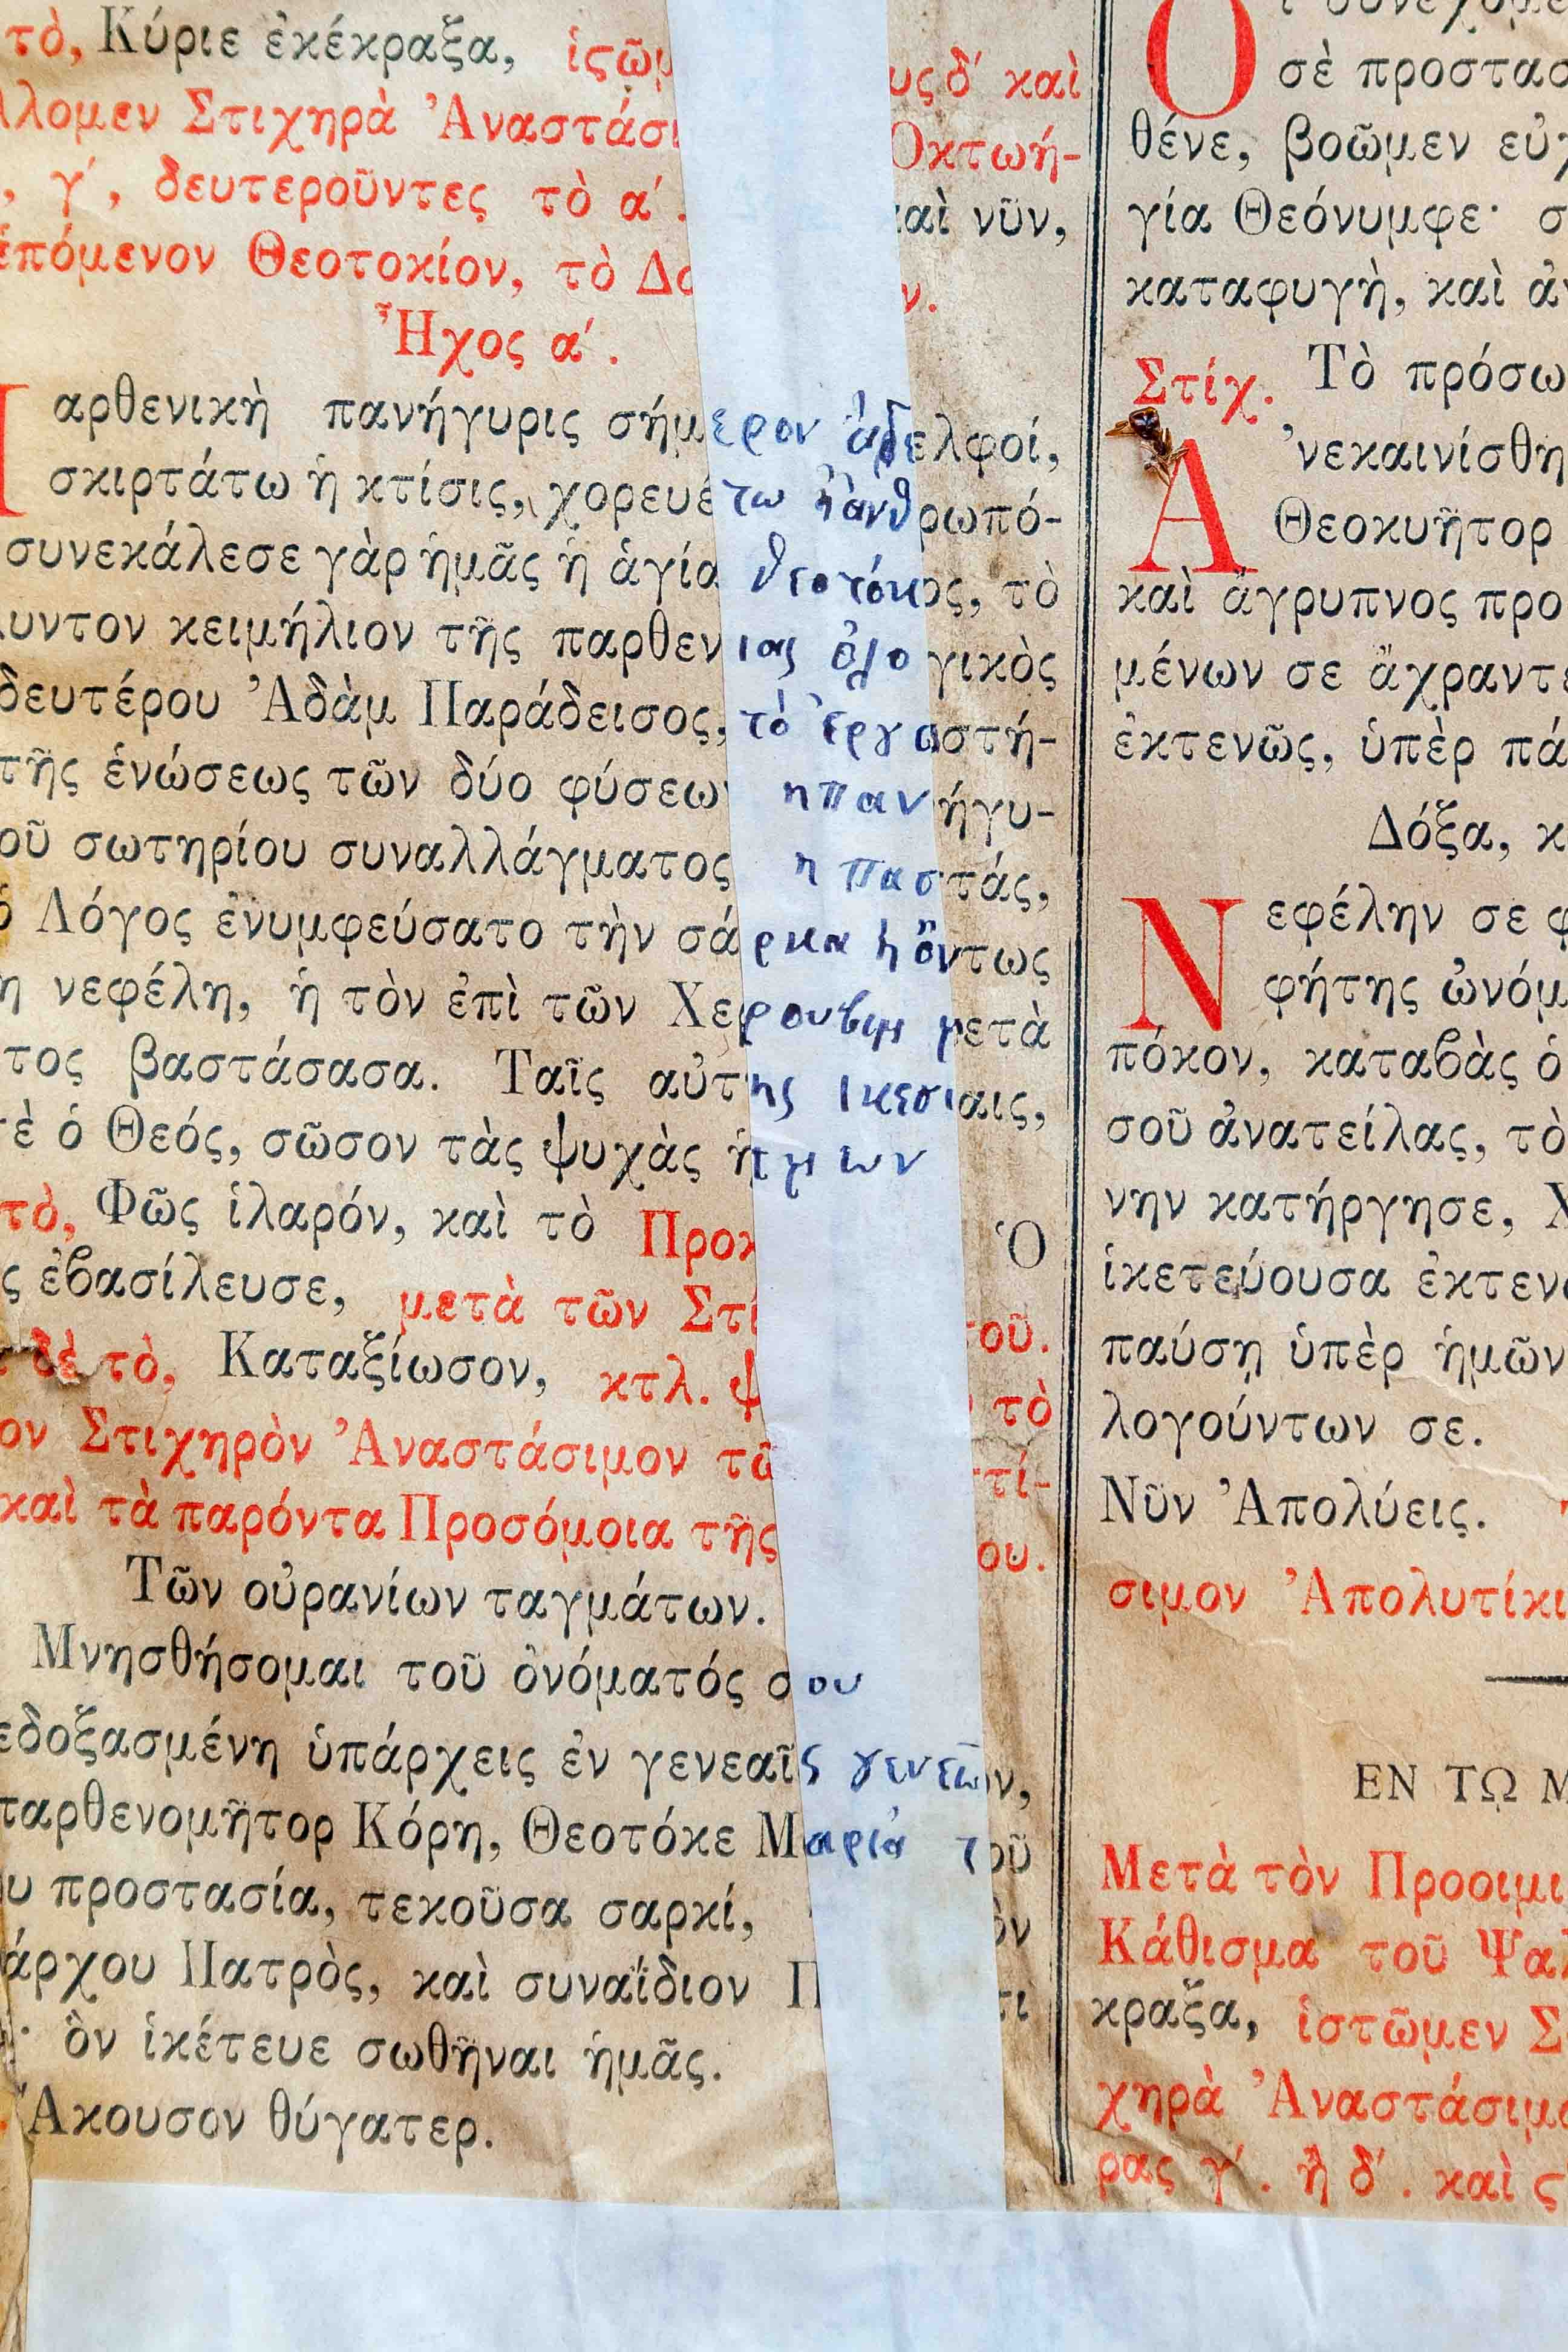 τὸ, Κύριε ἐκέκραξα, ἱςῶμ
λλομεν Στιχηρὰ Ἀναστάσι
, γ΄, δευτεροῦντες τὸ α΄.
ἑπόμενον Θεοτοκίον, τὸ Δο
Ἦχος α΄.
αρθενικὴ πανήγυρις σήμερον ἀδελφοί,
σκιρτάτω ἡ κτίσις, χορευέτω ἡ ἀνθρωπό-
συνεκάλεσε γὰρ ἡμᾶς ἡ ἁγία θεοτόκος, τὸ
υντον κειμήλιον τῆς παρθενιας ὁ λογικὸς
δευτέρου Ἀδὰμ Παράδεισος, τὸ ἐργαστή-
τῆς ἑνώσεως τῶν δύο φύσεων η πανήγυ-
οῦ σωτηρίου συναλλάγματος η παστάς,
ὁ Λόγος ἐνυμφεύσατο τὴν σάρκα ἡ ὄντως
η νεφέλη, ἡ τὸν ἐπὶ τῶν Χερουβιμ μετὰ
τος βαστάσασα. Ταῖς αὐτης ικεσιαις,
τὲ ὁ Θεός, σῶσον τὰς ψυχὰς ἡμων
τὸ, Φῶς ἱλαρόν, καὶ τὸ Προκ Ὁ
ς ἐβασίλευσε, μετὰ τῶν Στί τοῦ.
δὲ τὸ, Καταξίωσον, κτλ. ψ τὸ
ον Στιχηρὸν Ἀναστάσιμον τῶ τί-
καὶ τὰ παρόντα Προσόμοια τῆς ου.
Τῶν οὐρανίων ταγμάτων.
Μνησθήσομαι τοῦ ὀνόματός σου
εδοξασμένη ὑπάρχεις ἐν γενεαῖς γενεῶν,
παρθενομῆτορ Κόρη, Θεοτόκε Μαρία τοῦ
υ προστασία, τεκοῦσα σαρκί, ὸν
άρχου Πατρὸς, καὶ συναΐδιον Π τι
· ὃν ἱκέτευε σωθῆναι ἡμᾶς.
Ἄκουσον θύγατερ.
υς δ΄ καὶ
Ὀκτωή-
καὶ νῦν,
ν.
Ο
σὲ προστασ
θένε, βοῶμεν εὐχ
γία Θεόνυμφε· σ
καταφυγὴ, καὶ ἀν
Στίχ. Τὸ πρόσω
Ἀνεκαινίσθη
Θεοκυῆτορ
καὶ ἄγρυπνος προ
μένων σε ἄχραντε
ἐκτενῶς, ὑπὲρ πά
Δόξα, κ
Νεφέλην σε φ
φήτης ὠνόμ
πόκον, καταβὰς ὁ
σοῦ ἀνατείλας, τὸ
νην κατήργησε, Χ
ἱκετεύουσα ἐκτενῶ
παύσῃ ὑπὲρ ἡμῶν
λογούντων σε.
Νῦν Ἀπολύεις.
σιμον Ἀπολυτίκι
ΕΝ ΤΩ Μ
Μετὰ τὸν Προοιμι
Κάθισμα τοῦ Ψαλ
κραξα, ἱστῶμεν Σ
χηρὰ Ἀναστάσιμο
ρας γ΄. ἢ δ΄. καὶ ς